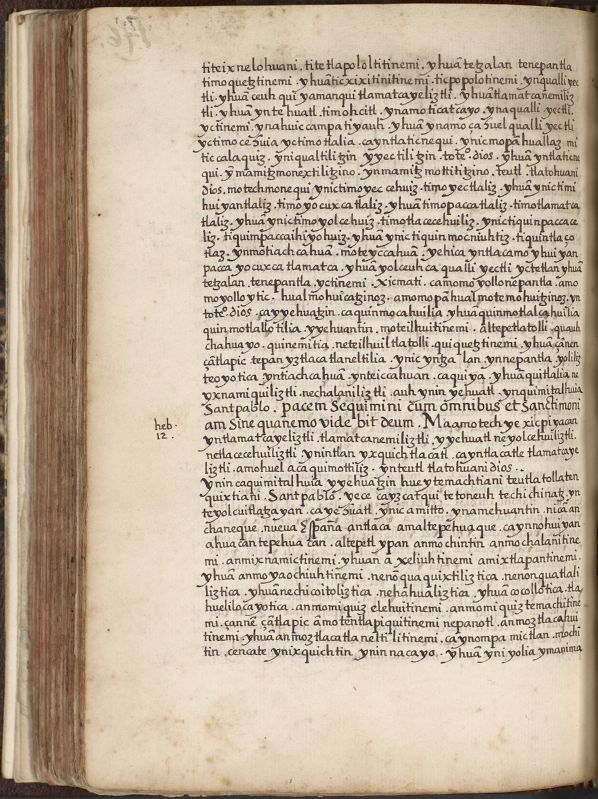 titeixnelohuani. titetlapololtitinemi. yhuã tetzalan tenepantla
timoquetztinemi. yhuã ticxixitinitinemi. ticpopolotinemi. yn qualli yec
tli. yhuã ceuhqui yamanqui tlamatcayeliztli. yhuã tlamatcanemiliz
tli. yhuã ynte huatl. timohcitl. ynamo ticatcayo. yna qualli yectli.
yctinemi. ynahuic campa tiyauh. yhuã ynamo ça huel qualli yectli
yctimo
qui.
dios. motechmonequi ynictimoyecehuiz. timoyectlaliz. yhuã ynictimi
huiyantlaliz. timoyocuxcatlaliz. yhuã timopaccatlaliz. timotlamatca
tlaliz. yhuã ynictimoyolcehuiz. timotlacecehuiliz. ynictiquinpaccace
liz. tiquinpaccaihiyohuiz. yhuã ynictiquinmocniuhtiz. tiquintlaço
tlaz. ynmotiachcahuã. moteyccahuã. yehica yntlacamo yhuiyan
pacca yocuxca tlamatca. yhuã yolceuhca qualli yectli yctetlan yhuã
tetzalan. tenepantla. yctinemi. xicmati. camo moyollo nepantla. amo
moyolloytic. hualmohuicatzinoz. amo mopã hualmotemohuitzinoz. yn
toteº. dios. ca yyehuatzin. ca quinmocahuilia. yhuã quinmotlalcahuilia
quinmotlallotilia. yyehuantin. moteilhuitinemi. altepetlatolli. quauh
chahuayo. quinemitia. neteilhuiltlatolli. quiquetztinemi. yhuã çannen
çãtlapic. tepan yztlacatlaneltilia. ynic yntzalan ynnepantla. yoliliz
teoyotica yntiachcahuã ynteiccahuan. ca quiyya. yhuã quitlalia ne
yxnamiquiliztli. nechalaniliztli. auh ynin yehuatl. ynquimitalhuia
Sant pablo. pacem Sequimini cum omnibus et Sanctimoni
am Sine qua nemo videbit deum. Maamotech yexicpiyacan
heb.
12.
yntlamatcayeliztli. tlamatcanemiliztli. yyehuatl neyolcehuiliztli.
netlacecehuiliztli ynintlan yxquich tlacatl. ca yntlacatle tlamatcaye
liztli. amo huel aca quimottiliz. ynteutl tlatohuani dios.
ynin caquimitalhuia yyehuatzin huey temachtiani teutlatollaten
quixtiani. Sant pablo. yece cayzcatqui tetoneuh techichinatz. yn
teyolcuitlatzayan. ca yehuatl. ynic amitto. ynamehuantin. nicã an
chaneque, nueua España antlaca amaltepehuaque. caynnohuiyan
ahuacan tepehuacan. altepetl ypan anmochintin anmochalanitine
mi. anmixnamictinemi. yhuan axeliuhtinemi amixtlapantinemi.
yhuã anmoyaochiuhtinemi. nenõquaquixtiliztica. nenonquatlali
liztica. yhuã nechicoitoliztica. nehahualiztica. yhuã cocollotica. tla
huelilocayotica. anmomiquizelehuitinemi. anmomiquiztemachitine
mi. çannẽ çãtlapic ãmotentlapiquitinemi nepanotl. anmoztlacahui
tinemi. yhuã anmoztlacatlaneltilitinemi. caynompa mictlan. mochi
tin. cencate ynixquichtin, yninnacayo. yhuã yniyolia ymanima